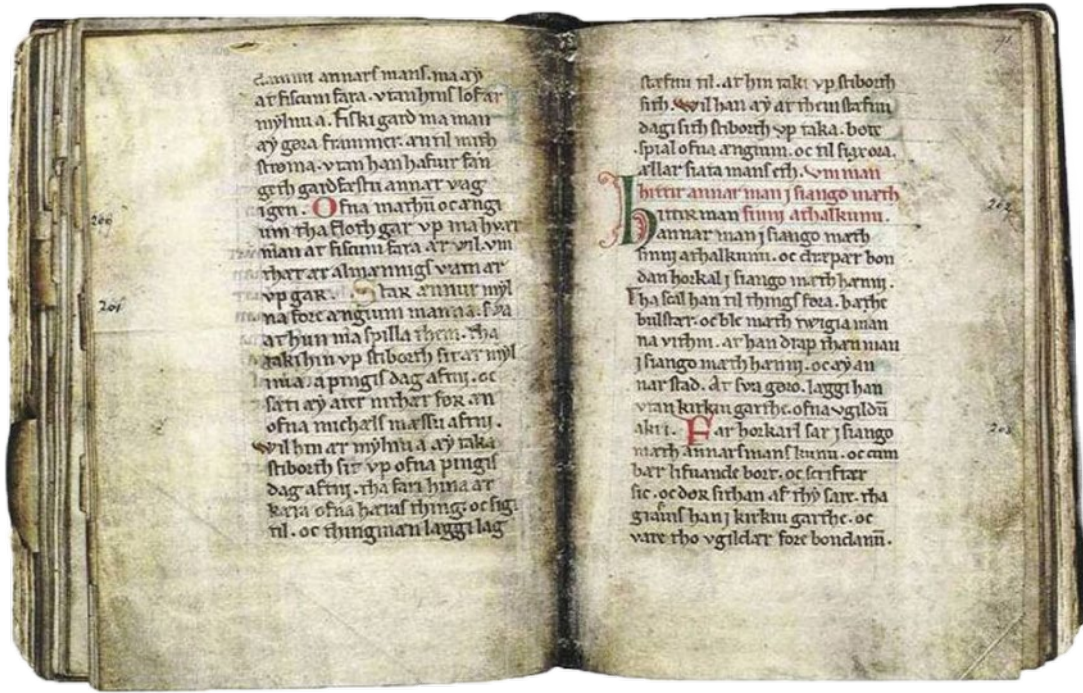 dammi annars mans. ma æy
at fiscum fara. vtan hins lof ær
mylnu a. Fiski gard ma man
æy gøra frammer. æn til mith
strøma. vtan han hafuir fan
geth gardfestu annær vag
igen. Ofna mathū oc ængi
um tha floth gar vp ma hvær
man at fiscum fara ær wil. vm
thæt ær almænnigs vatn ær
vp gar. Star annur myl
na fore ængium manna. swa
at hun ma spilla them. tha
taki hin vp stiborth sit ær myl
nu a. a pingis dag aftnj. oc
sæti æy ater nithær før æn
ofna michæls mæssu aftni.
wil hin ær mylnu a æy taka
stiborth sit vp ofna pingis
dag aftnj. tha fari hin a at
kæra ofna hæras thing. oc sigi
til. oc thingmæn læggi lag
stæfnu til. at hin taki vp stiborth
sith. wil han æy at them stæfnu
dagi sith stiborth vp taka. bøte
spial ofna ængium. oc til siax øra.
ællar siata mans eth. vm man
hittir annar man j siango mæth
hittir man sinnj athalkunu.
annar man j siango mæth
sinnj athalkunu. oc dræpær bon
dan horkal j siango mæth hænnj.
Tha scal han til things føra. bæthe
bulstær. oc ble mæth twigia man
na vitnum. at han drap thæn man
j siango mæth hænnj. oc æy an
nar stad. Ær swa gøro. læggi han
vtan kirkiu garthe. ofna vgildū
akri. Far horkarl sar j siango
mæth annars mans kunu. oc cum
bær lifuande bort. oc scriftær
sic. oc dør sithan af thy sare. tha
graius han j kirkiu garthe. oc
vare tho vgildær fore bondanū.
200
201
202
203
91